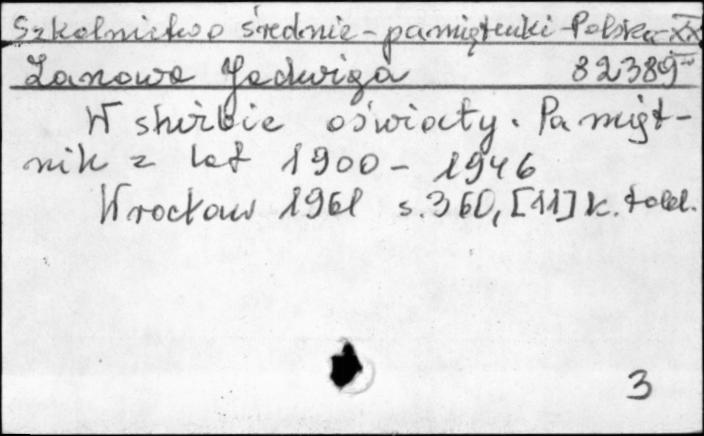 Szkolnictwo średnie - pamiętniki - Polska - XX
Zanowa Jadwiga 82389
W służbie oświaty. Pamięt-
nik z lat 1900 - 1946
Wrocław 1961 s. 360, [11] k. tabl.
3